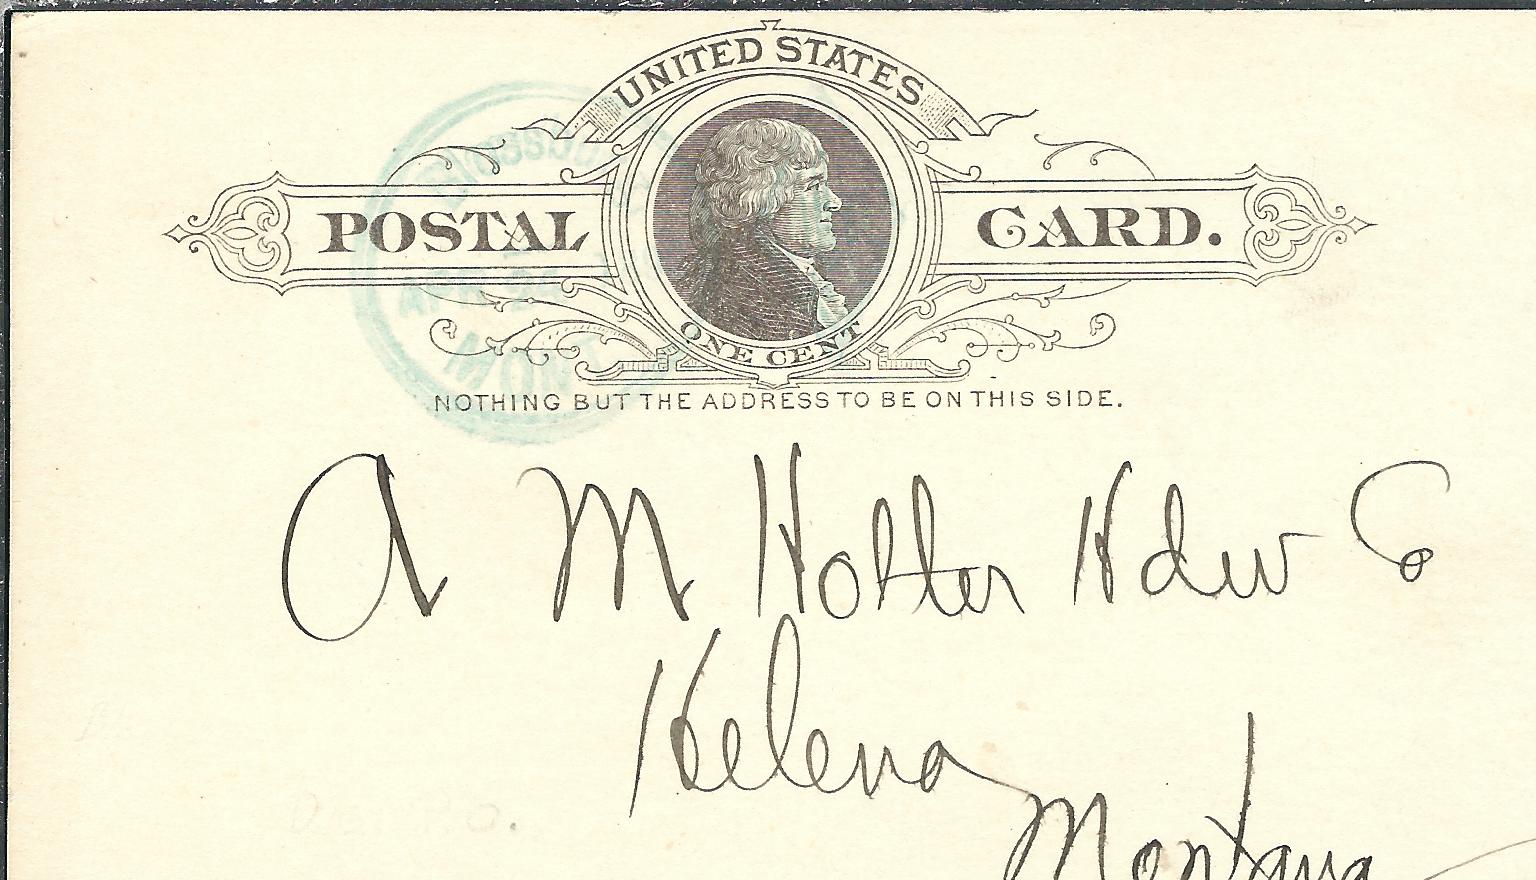 UNITED STATES
POSTAL CARD.
ONE CENT
NOTHING BUT THE ADDRESS TO BE ON THIS SIDE.
A M Holter Hdw Co
Helena
Montana
APR
MONT